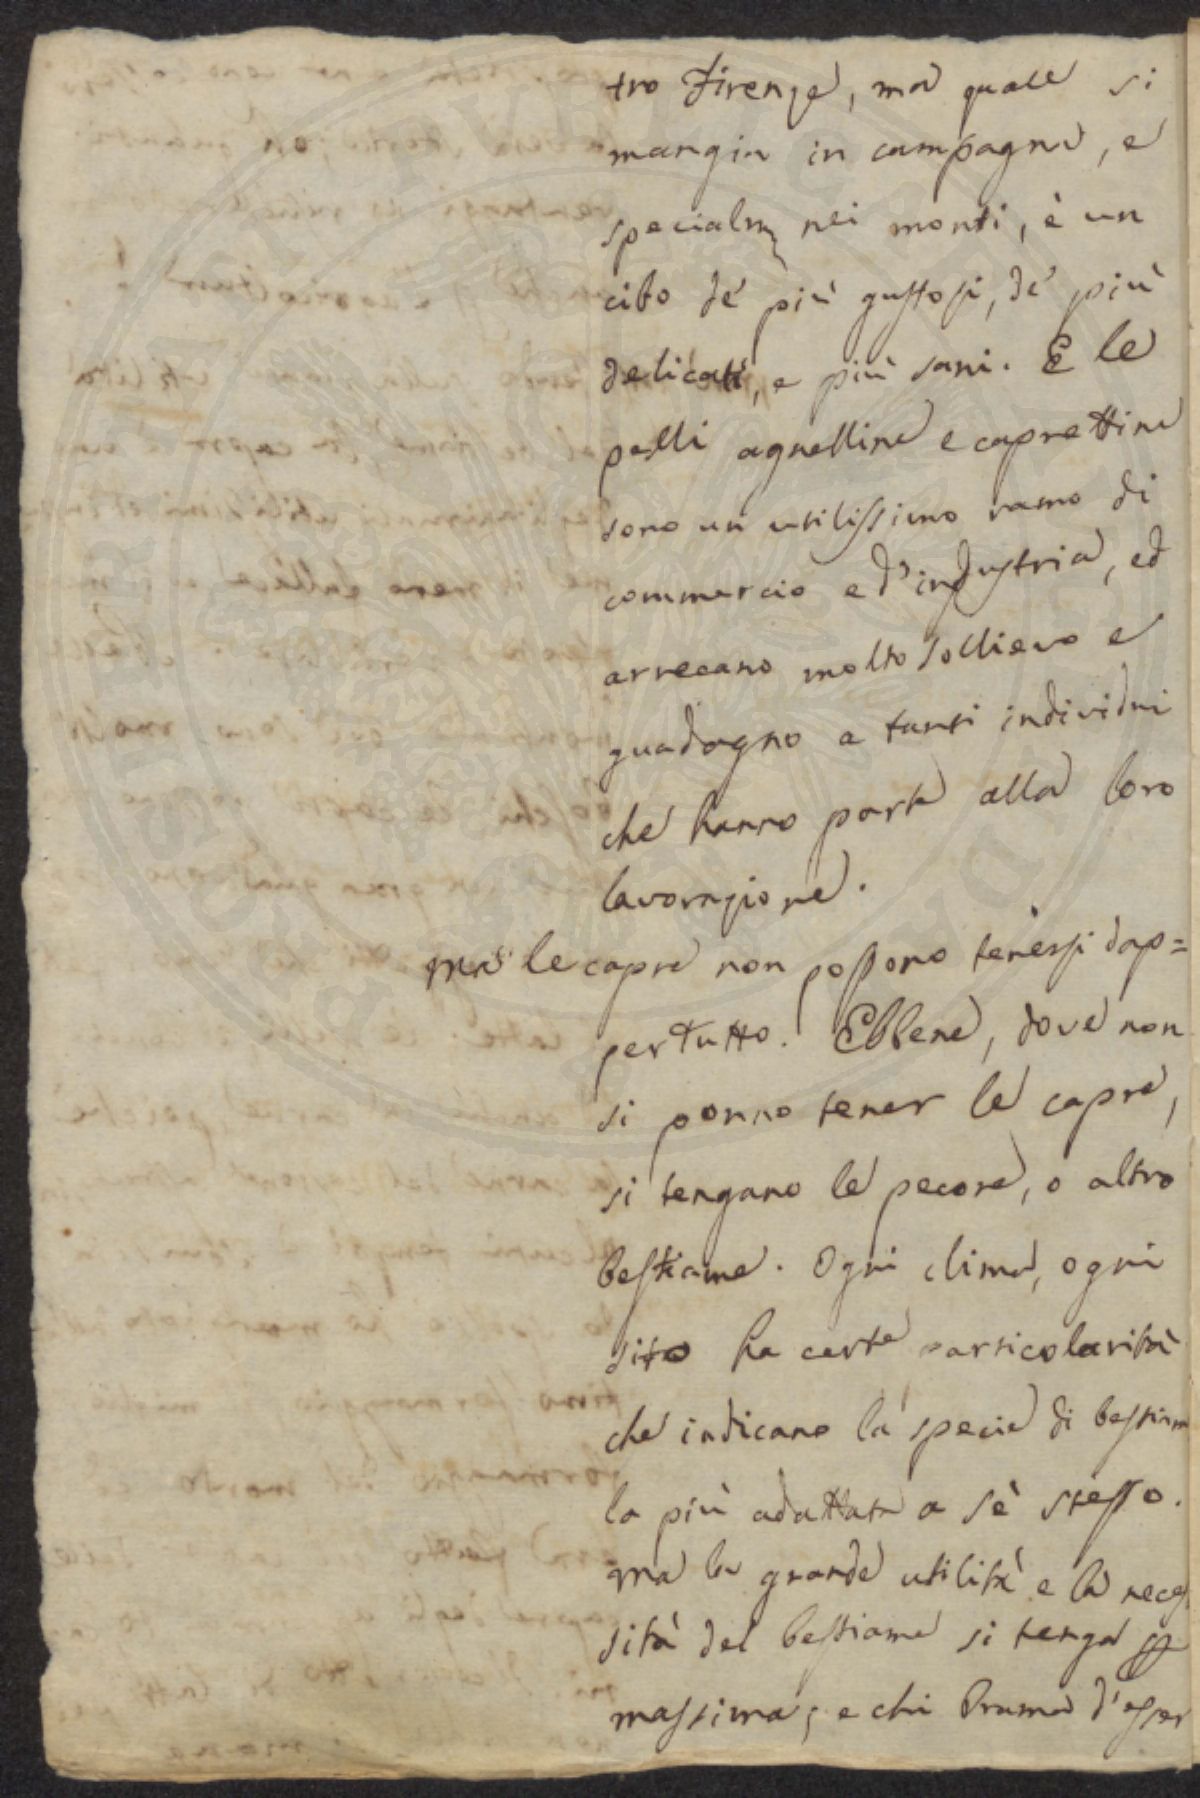 tro Firenze, ma quale si
mangia in campagna, e
specialm nei monti, è un
cibo de' più gustosi, de' più
delicati, e più sani. E le
pelli agnelline e caprettine
sono un utilissimo ramo di
commercio e d'industria, ed
arrecano molto sollievo e
guadagno a tanti individui
che hanno parte alla loro
lavorazione.
Ma le capre non possono tenersi dap=
pertutto. Ebbene, dove non
si ponno tener le capre,
si tengano le pecore, o altro
bestiame. Ogni clima, ogni
sito ha certe particolarità
che indicano la specie di bestiam
la più adattata a sè stesso.
Ma la grande utilità e la neces
sità del bestiame si tenga p
massima; e chi brama d'esser